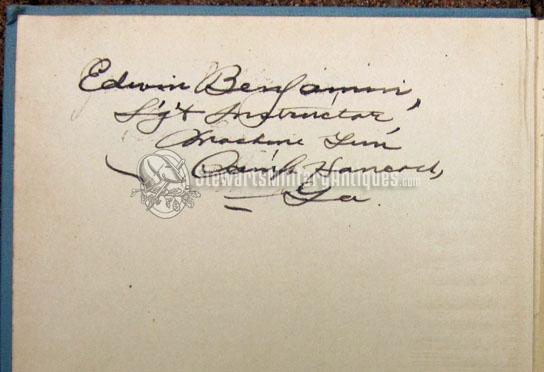 Edwin Benjamin,
Sgt Instructor,
Machine Gun
Camp Hancock,
Ga.
StewartsMilitaryAntiques.com